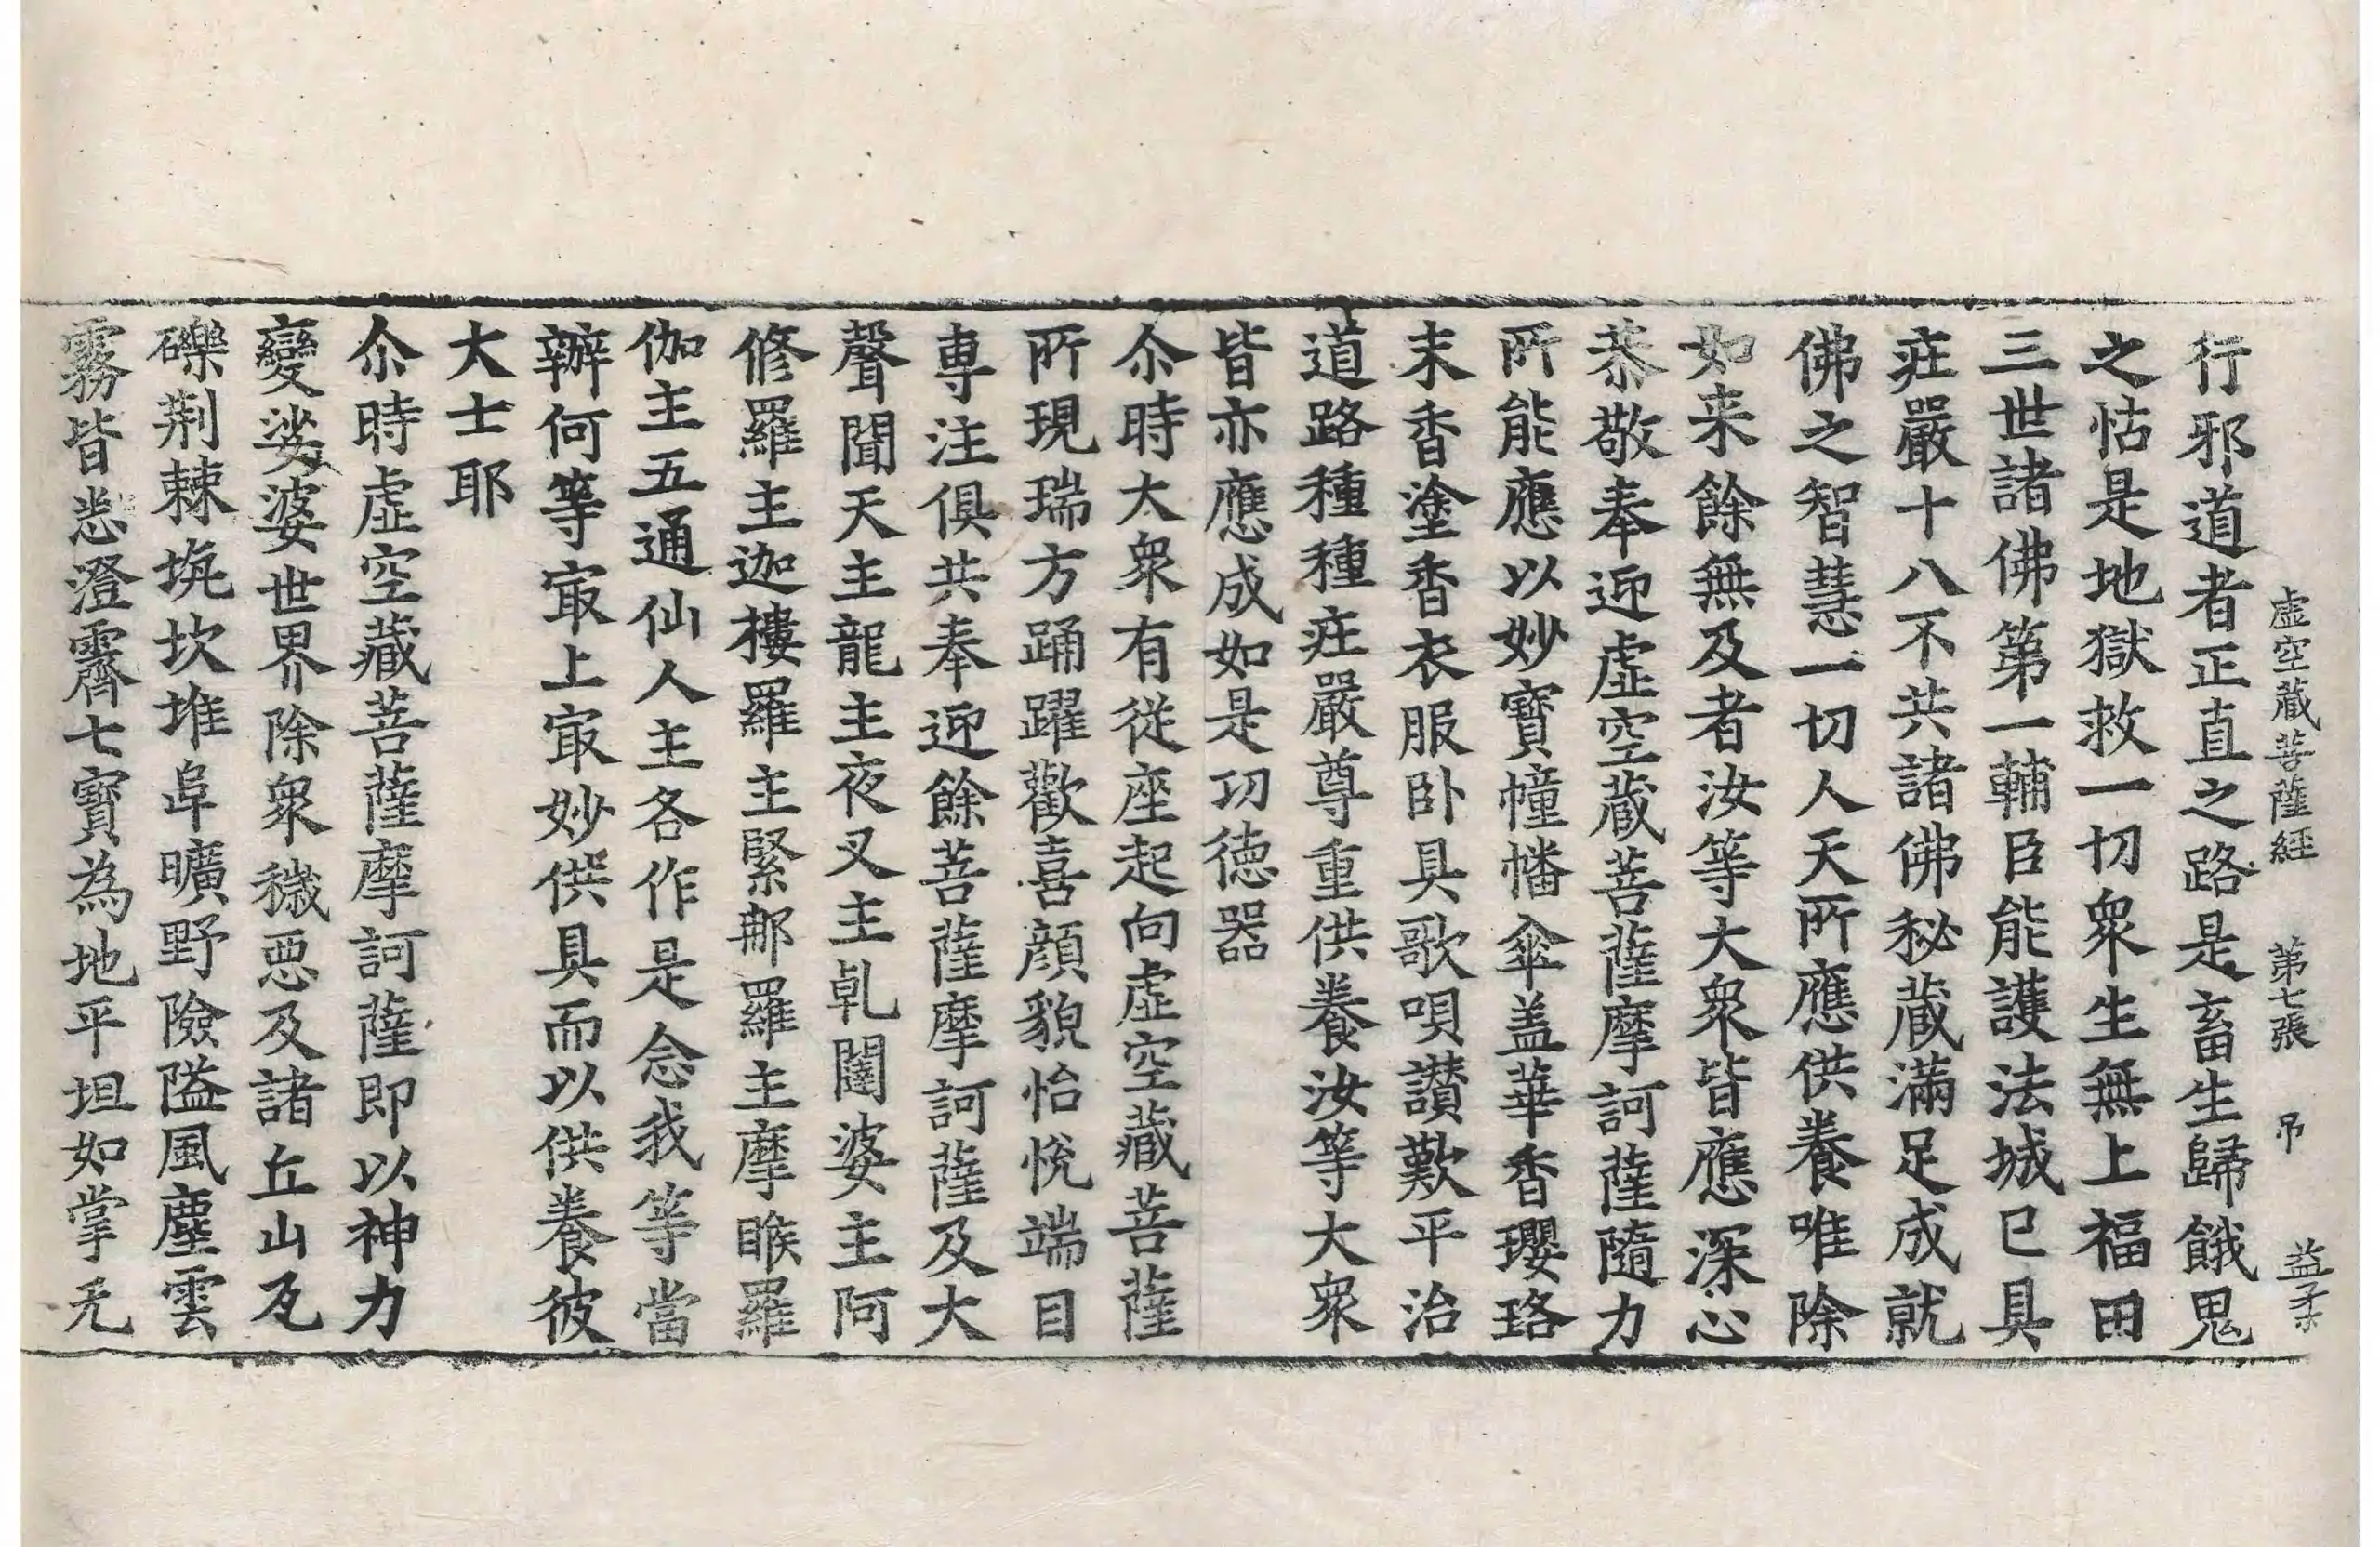 虛空藏菩薩経 第七張 吊 益柔
行邪道者正直之路是畜生歸餓鬼
之怙是地獄救一切衆生無上福田
三世諸佛第一輔臣能護法城已具
莊嚴十八不共諸佛秘蔵滿足成就
佛之智慧一切人天所應供養唯除
如来餘無及者汝等大衆皆應深心
恭敬奉迎虛空蔵菩薩摩訶薩隨力
所能應以妙寶幢幡傘盖華香瓔珞
末香塗香衣服卧具歌唄讃歎平治
道路種種莊嚴尊重供養汝等大衆
皆亦應成如是功徳器
尒時大衆有從座起向虛空藏菩薩
所現瑞方踊躍歡喜顔貌怡悅端目
専注俱共奉迎餘菩薩摩訶薩及大
聲聞天主龍主夜叉主乹闥婆主阿
修羅主迦樓羅主緊那羅主摩睺羅
伽主五通仙人主各作是念我等當
辦何等㝡上㝡妙供具而以供養彼
大士耶
尒時虛空藏菩薩摩訶薩即以神力
變娑婆世界除衆穢惡及諸丘山瓦
礫荆棘坑坎堆阜曠野險隘風塵雲
霧皆悉澄霽七寶為地平坦如掌无